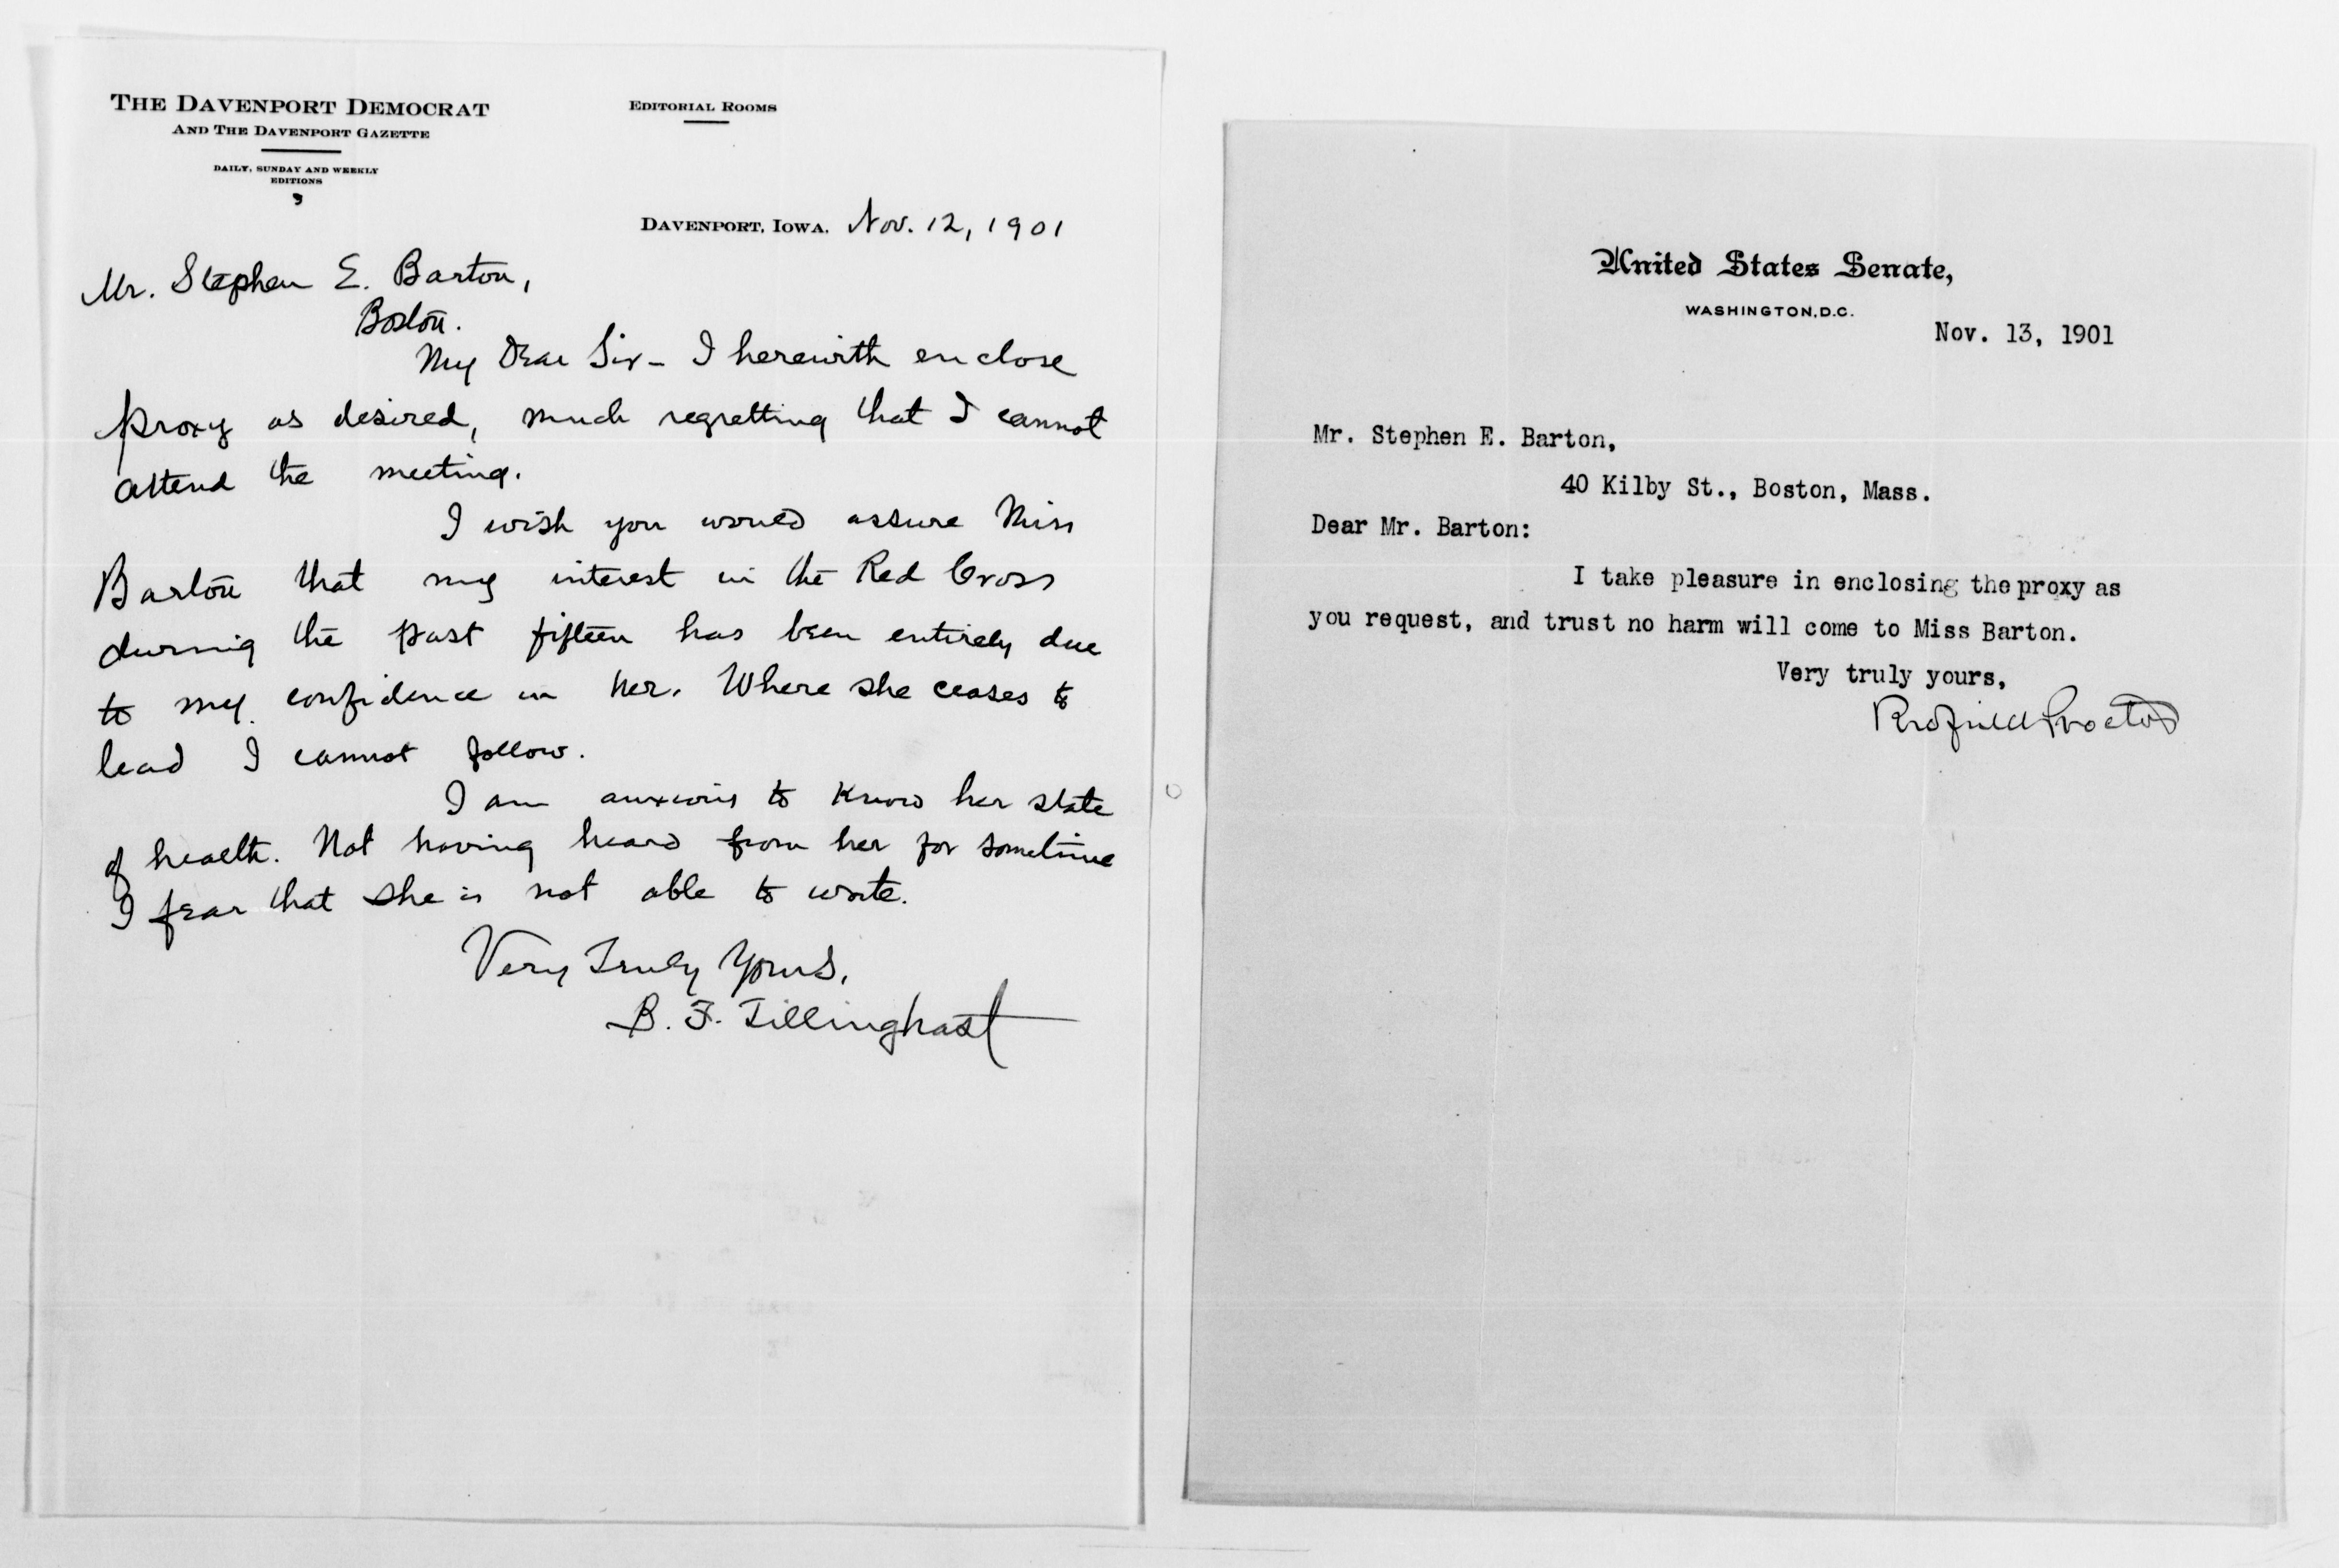 THE DAVENPORT DEMOCRAT
AND THE DAVENPORT GAZETTE
DAILY, SUNDAY AND WEEKLY
EDITIONS
EDITORIAL ROOMS
DAVENPORT, IOWA. Nov. 12, 1901
Mr. Stephen E. Barton,
Boston.
My Dear Sir - I herewith enclose
proxy as desired, much regretting that I cannot
attend the meeting.
I wish you would assure Miss
Barton that my interest in the Red Cross
during the past fifteen has been entirely due
to my confidence in her. Where she ceases to
lead I cannot follow.
I am anxious to know her state
of health. Not having heard from her for sometime
I fear that she is not able to write.
Very Truly Yours,
B. F. Tillinghast
United States Senate,
WASHINGTON, D.C.
Nov. 13, 1901
Mr. Stephen E. Barton,
40 Kilby St., Boston, Mass.
Dear Mr. Barton:
I take pleasure in enclosing the proxy as
you request, and trust no harm will come to Miss Barton.
Very truly yours,
Redfield Proctor